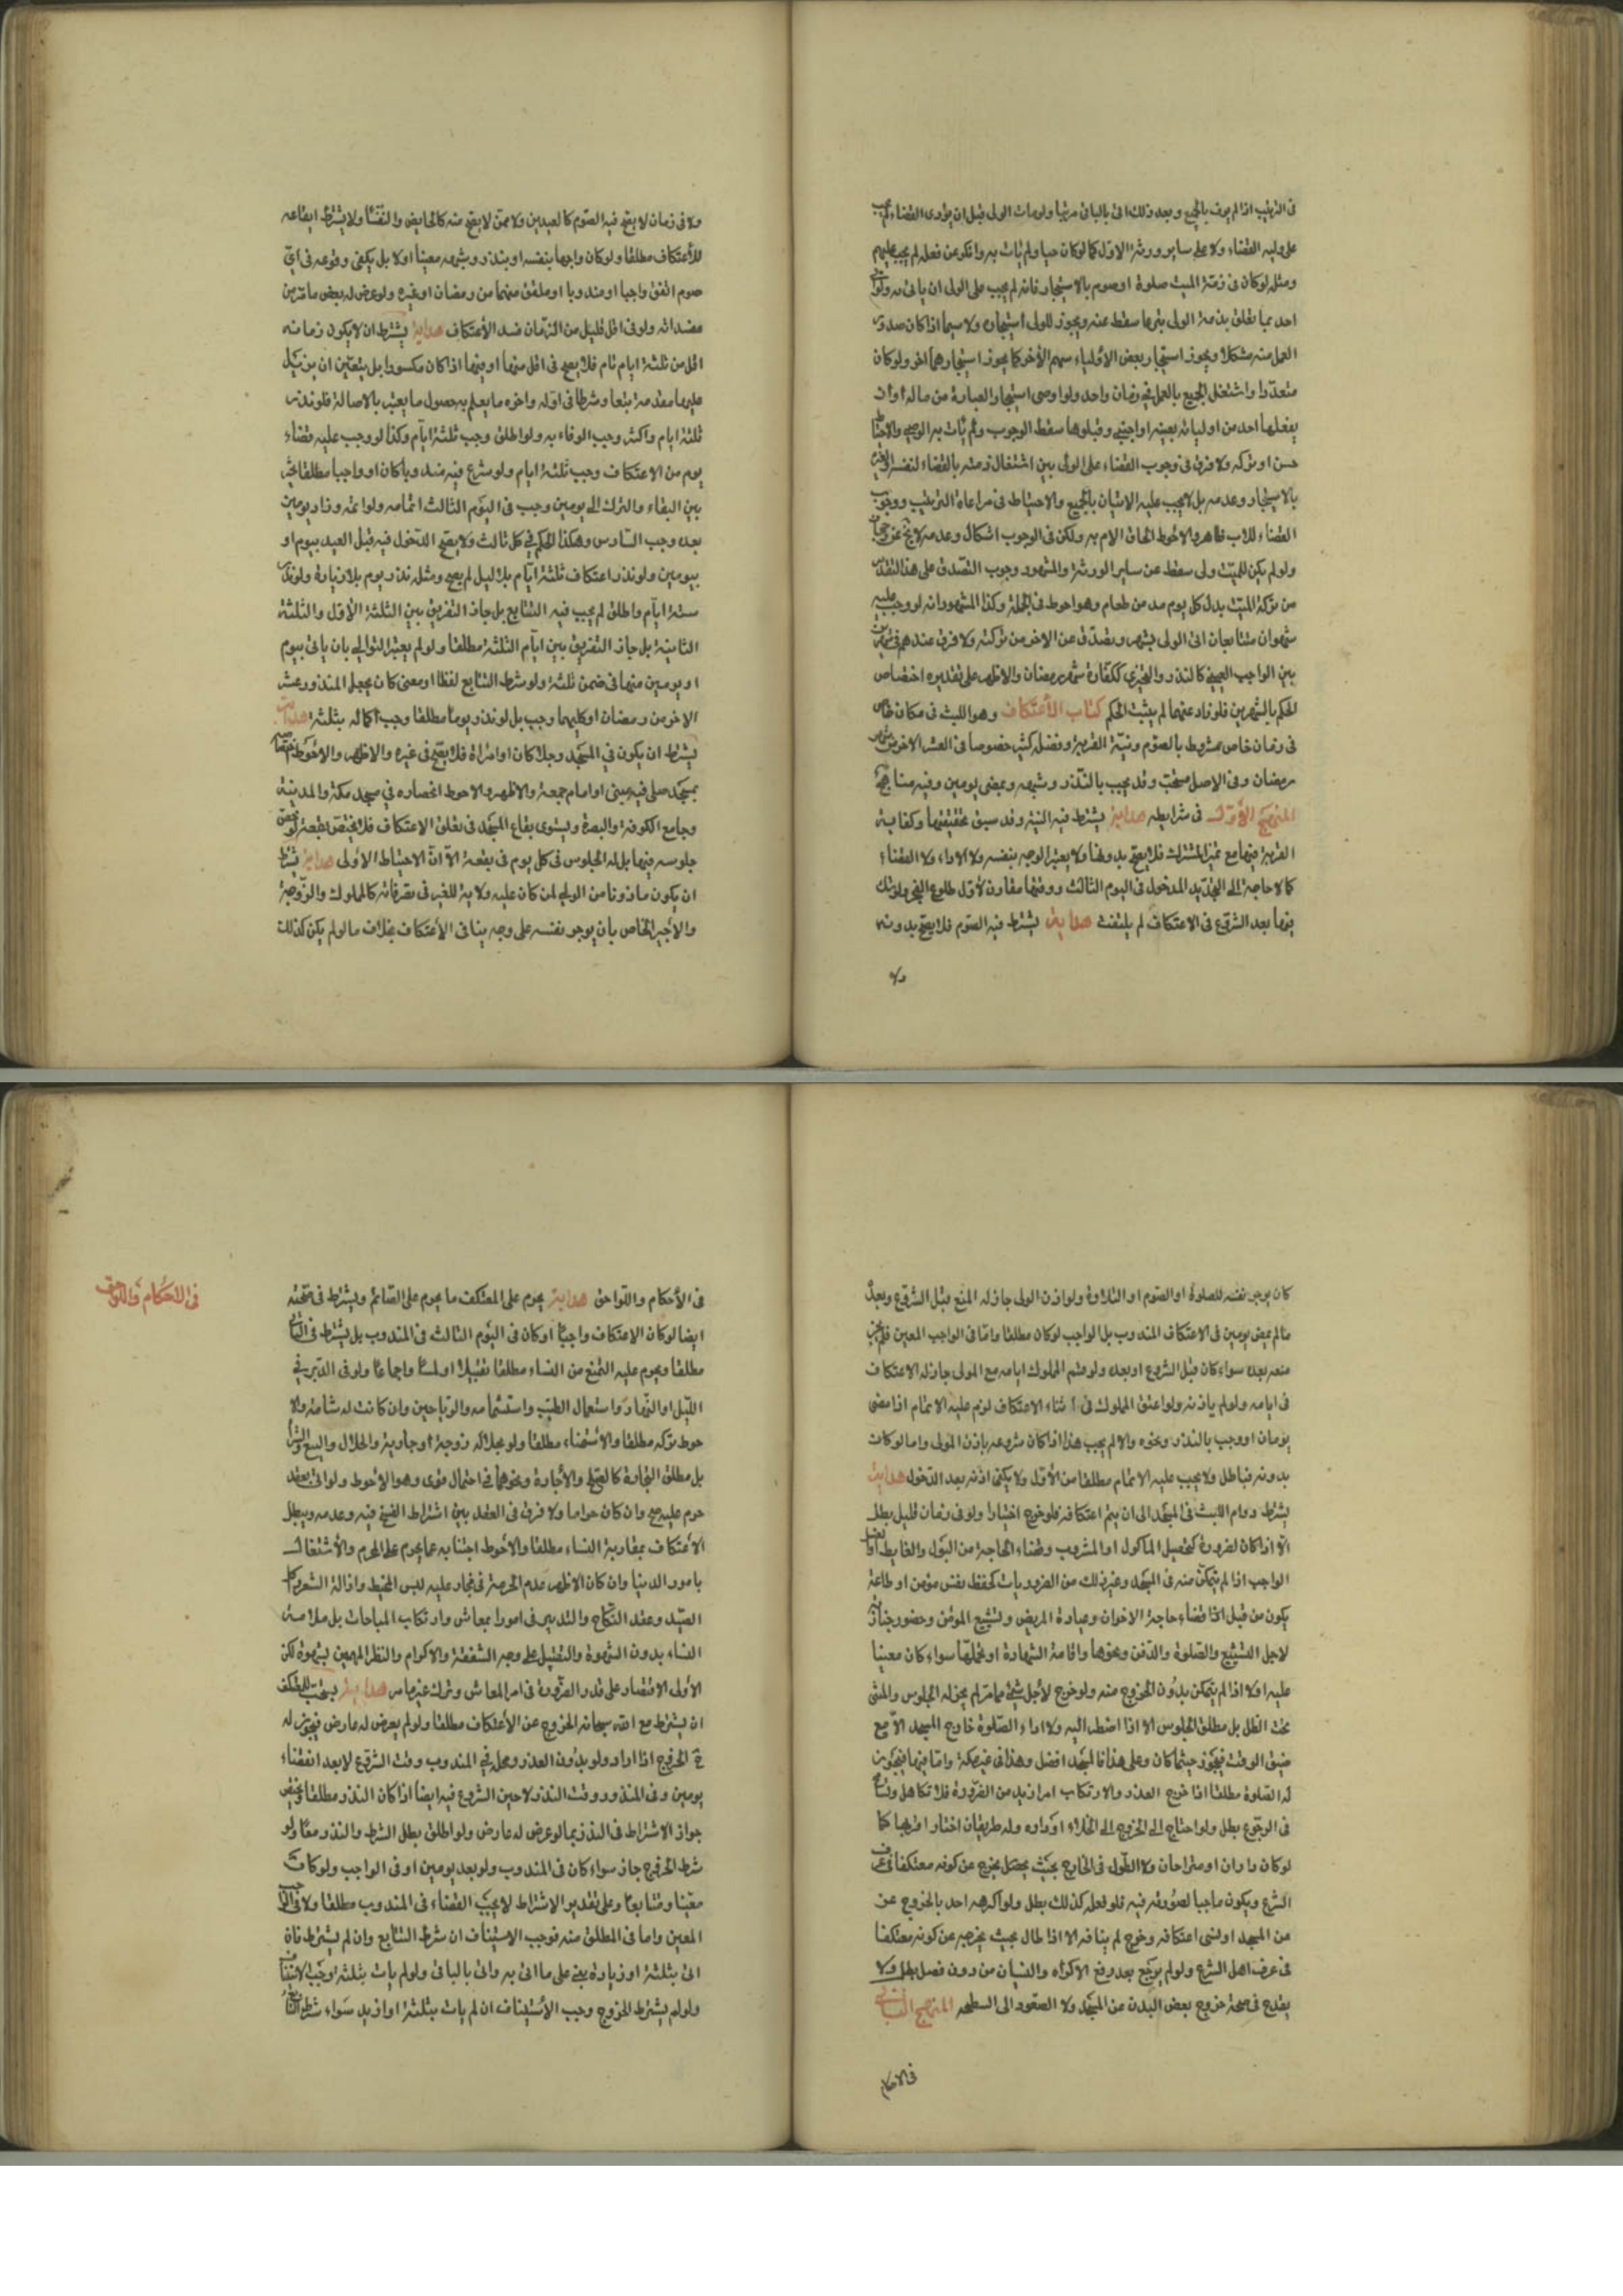 فى الترتيب اذا لم يوف بالجميع وبعد ذلك اتى بالباقى مرتبا ولو مات الولى قبل ان يؤدى القضاء لم يجب
على وليه القضاء ولا على ساير ورثة الاول كما لو كان حيا ولم يات به وانكر عن فعله لم يجب عليهم
ومثله لو كان فى ذمة الميت صلوة او صوم بالاستيجار فانه لم يجب على الولى ان ياتى به ولو
احد بما تعلق بذمة الولى تبرعا سقط عنه ويجوز للولى استيجاره ولا سيما اذا كان صدور
العمل منه مشكلا ويجوز استيجار بعض الاولياء سهم الأخر كما يجوز استيجارهما اخر ولو كان
متعددا واشتغل الجميع بالعمل فى زمان واحد ولو اوصى استيجار العبادة من ماله او ان
يفعلها احد من اوليائه بعينه او اجنبى وقبلوها سقط الوجوب ولم يات به الوصى والاحتياط
حسن او تركه ولا فرق فى وجوب القضاء على الولى بين اشتغال ذمته بالقضاء لنفسه او لغيره
بالاستيجار وعدمه بل لا يجب عليه الاتيان بالجميع والاحتياط فى مراعاة الترتيب ووجوب
القضاء للاب ظاهر والاحوط الحاق الام به ولكن فى الوجوب اشكال وعدمه لا يخ عن رجحان
ولو لم يكن للميت ولى سقط عن ساير الورثة والمشهور وجوب التصدق على هذا التقدير
من تركة الميت بدل كل يوم مد من طعام وهو احوط فى الجملة وكذا المشهور انه لو وجب عليه
شهران متتابعان اتى الولى بشهر ويصدق عن الاخر من تركته ولا فرق عندهم فى شهرين
بين الواجب العينى كالنذر والتخيرى ككفارة شهر رمضان والاظهر على تقديره اختصاص
الحكم بالشهرين فلو زاد عنهما لم يثبت الحكم كتاب الأعتكاف وهو اللبث فى مكان خاص
فى زمان خاص مشروط بالصوم ونية القربة وفضله كثير خصوصا فى العشر الاخر من شهر
رمضان وفى الاصل مستحب وقد يجب بالنذر وشبهه وبمضى يومين وفيه مناهج
المنهج الأول فى شرايطه هداية يشترط فيه النية وقد سبق تحقيقها وكفاية
القربة فيها مع تميز المشترك فلا يصح بدونها ولا يعتبر الوجه بنفسه ولا الاداء ولا القضاء
كما لا حاجة الى التجديد المدخول فى اليوم الثالث ووقتها مقارن لاول طلوع الفجر ولو شك
فيها بعد الشروع فى الاعتكاف لم يلتفت هداية يشترط فيه الصوم فلا يصح بدونه
ولا
ولا فى زمان لا يصح فيه الصوم كالعيدين ولا ممن لا يصح منه كالحايض والنفساء ولا يشترط ايقاعه
للأعتكاف مطلقا ولو كان واجبا بنفسه او بنذر وشبهه معينا اولا بل يكفى وقوعه فى اى
صوم اتفق واجبا او مندوبا او ملفق منهما من رمضان او غيره ولو عرض له بعض ما تقدم من
مفسداته ولو فى اقل قليل من الزمان فسد الأعتكاف هداية يشترط ان لا يكون زمانه
اقل من ثلثة ايام تام فلا يصح فى اقل منها او فيها اذا كان مكسورا بل يتعين ان يزيد
عليها مقدمة تبعا وشرطا فى اوله واخره ما يعلم به حصول ما يعتبر بالاصالة فلو نذر
ثلثة ايام واكثر وجب الوفاء به ولو اطلق وجب ثلثة ايام وكذا لو وجب عليه قضاء
يوم من الاعتكاف وجب ثلثة ايام ولو شرع فيه مندوبا كان او واجبا مطلقا تخير
بين البقاء والترك الى يومين وجب فى اليوم الثالث اتمامه ولو اتمه وزاد يومين
بعده وجب السادس وهكذا الحكم فى كل ثالث ولا يصح الدخول فيه قبل العيد بيوم او
بيومين ولو نذر اعتكاف ثلثة ايام بلا ليل لم يصح ومثله نذر يوم بلا زيادة ولو نذر
ستة ايام واطلق لم يجب فيه التتابع بل جاز التفريق بين الثلثة الأول والثلثة
الثانية بل جاز التفريق بين ايام الثلثة مطلقا ولو لم يعتبر التوالى بان ياتى بيوم
او يومين منها فى ضمن ثلثة ولو شرط التتابع لفظا او معنى كان يجعل المنذور عشر
الاخر من رمضان او كليهما وجب بل لو نذر يوما مطلقا وجب اكماله بثلثة هداية
يشترط ان يكون فى المسجد رجلا كان او امراة فلا يصح فى غيره والاظهر والاحوط
بمسجد صلى فيه نبى او امام جمعة والاظهر والاحوط انحصاره فى مسجد مكة والمدينة
وجامع الكوفة والبصرة ويستوى بقاع المسجد فى تعلق الاعتكاف فلا تختص بقعة لو
جلوسه فيها بل له الجلوس فى كل يوم فى بقعة الا ان الاحتياط الاولى هداية يشترط
ان يكون ماذونا من الولى لمن كان عليه ولاية للغير فى تصرفاته كالمملوك والزوجة
والأجير الخاص بان يوجر نفسه على وجه ينافى الأعتكاف بخلاف ما لو لم يكن كذلك
كان يوجر نفسه للصلوة او الصوم او التلاوة ولو اذن الولى جاز له المنع قبل الشروع وبعده
ما لم يمض يومين فى الاعتكاف المندوب بل الواجب لو كان مطلقا واما فى الواجب المعين فلم يجز
منعه بعده سواء كان قبل الشروع او بعده ولو قسم المملوك ايامه مع المولى جاز له الاعتكاف
فى ايامه ولو لم ياذنه ولو اعتق المملوك فى اثناء الاعتكاف لزم عليه الاتمام اذا مضى
يومان او وجب بالنذر ونحوه والا لم يجب هذا اذا كان شروعه باذن المولى واما لو كان
بدونه فباطل ولا يجب عليه الاتمام مطلقا من الأول ولا يكفى اذنه بعد الدخول هداية
يشترط دوام اللبث فى المسجد الى ان يتم اعتكافه فلو خرج اختيارا ولو فى زمان قليل بطل
الا اذا كان لضرورة كتحصيل الماكول او المشروب وقضاء الحاجة من البول والغايط او
الواجب اذا لم يتمكن منه فى المسجد وغير ذلك من الضروريات كحفظ نفس مؤمن او طاعة
يكون من قبل الله قضاء حاجة الاخوان وعيادة المريض وتشييع المؤمن وحضور جنازة
لاجل التشييع والصلوة والدفن ونحوها واقامة الشهادة او تحملها سواء كان معينا
عليه او لا اذا لم يتمكن بدون الخروج منه ولو خرج لأجل شئ مما مر لم يجز له الجلوس والمشى
تحت الظل بل مطلق الجلوس الا اذا اضطر اليه ولا اداء الصلوة خارج المسجد الا مع
ضيق الوقت فيجوز حيثما كان وعلى هذا فالمسجد افضل وهذا فى غير مكة واما فيها فيجوز
له الصلوة مطلقا اذا خرج العذر والارتكاب امر ازيد من الضرورة فلا تكاهل وتسامح
فى الرجوع بطل ولو احتاج الى الخروج الى الخلاء او داره وله طريقان اختار اقربهما كما
لو كان داران او مستراحان ولا الطول فى الخارج بحيث يحصل يخرج عن كونه معتكفا فى عرف
الشرع ويكون ماحيا لصورته فيه فلو فعل كذلك بطل ولو اكرهه احد بالخروج عن
من المسجد او نسى اعتكافه وخرج لم ينافه الا اذا طال بحيث يخرجه عن كونه معتكفا
فى عرف اهل الشرع ولو لم يرجع بعد رفع الاكراه والنسيان من دون فصل بطل ولا
يقدح فى صحة خروج بعض البدن من المسجد ولا الصعود الى السطحه المنهج الثانى
فى الاحكام
فى الأحكام واللواحق هداية يحرم على المعتكف ما يحرم على الصائم ويشترط فى صحته
ايضا لو كان الاعتكاف واجبا او كان فى اليوم الثالث فى المندوب بل يشترط فى الثانى
مطلقا ويحرم عليه التمتع من النساء مطلقا تقبيلا او لمسا واجماعا ولو فى الدبر فى
الليل او النهار واستعمال الطيب واستشمامه والرياحين وان كانت له شامة ولا
حوط تركه مطلقا والاستمناء مطلقا ولو بحلاله زوجة او جارية والحلال والبيع والشراء
بل مطلق التجارة كالصلح والأجارة ونحوهما فى احتمال قوى وهو الاحوط ولو اتى بعقد
حرم عليه صح وان كان حراما ولا فرق فى العقد بين اشتراط الفسخ فيه وعدمه ويبطل
الأعتكاف بمقاربة النساء مطلقا والاحوط اجتنابه عما يحرم على المحرم والأشتغال
بامور الدنيا وان كان الاظهر عدم الحرمة فى فجاز عليه لبس المخيط وازالة الشعر واكل
الصيد وعقد النكاح والتدبير فى امور المعاش وارتكاب المباحات بل ملامسة
النساء بدون الشهوة والتقبيل على وجه الشفقة والاكرام والنظر اليهن بشهوة لكن
الأولى الاقتصار على قدر الضرورة فى امر المعاش وترك غير ما مر هداية يستحب للمعتكف
ان يشترط مع الله سبحانه الخروج عن الأعتكاف مطلقا ولو لم يعرض له عارض فيجوز له
ح الخروج اذا اراد ولو بدون العذر ومحله فى المندوب وقت الشروع لا بعد انقضاء
يومين وفى المنذور وقت النذر لا حين الشروع فيه ايضا اذا كان النذر مطلقا ويختص
جواز الاشتراط فى النذر بما لو عرض له عارض ولو اطلق بطل الشرط والنذر معا ولو
شرط الخروج جاز سواء كان فى المندوب ولو بعد يومين او فى الواجب ولو كان
معينا ومتتابعا وعلى تقدير الاشتراط لا يجب القضاء فى المندوب مطلقا ولا فى الواجب
المعين واما فى المطلق منه فوجب الاستيناف ان شرط التتابع وان لم يشترط فان
اتى بثلثة او زيادة يبنى على ما اتى به واتى بالباقى ولو لم يات بثلثة وجب الاستيناف
ولو لم يشترط الخروج وجب الأستيناف ان لم يات بثلثة او ازيد سواء شرط التتابع
فى الاحكام واللواحق